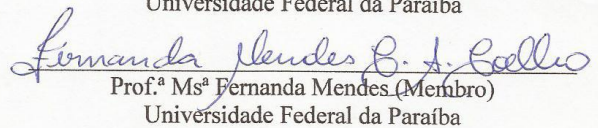 Universidade Federal da Paraíba
Fernanda Mendes C. A. Coelho
Prof.ª Msª Fernanda Mendes (Membro)
Universidade Federal da Paraíba